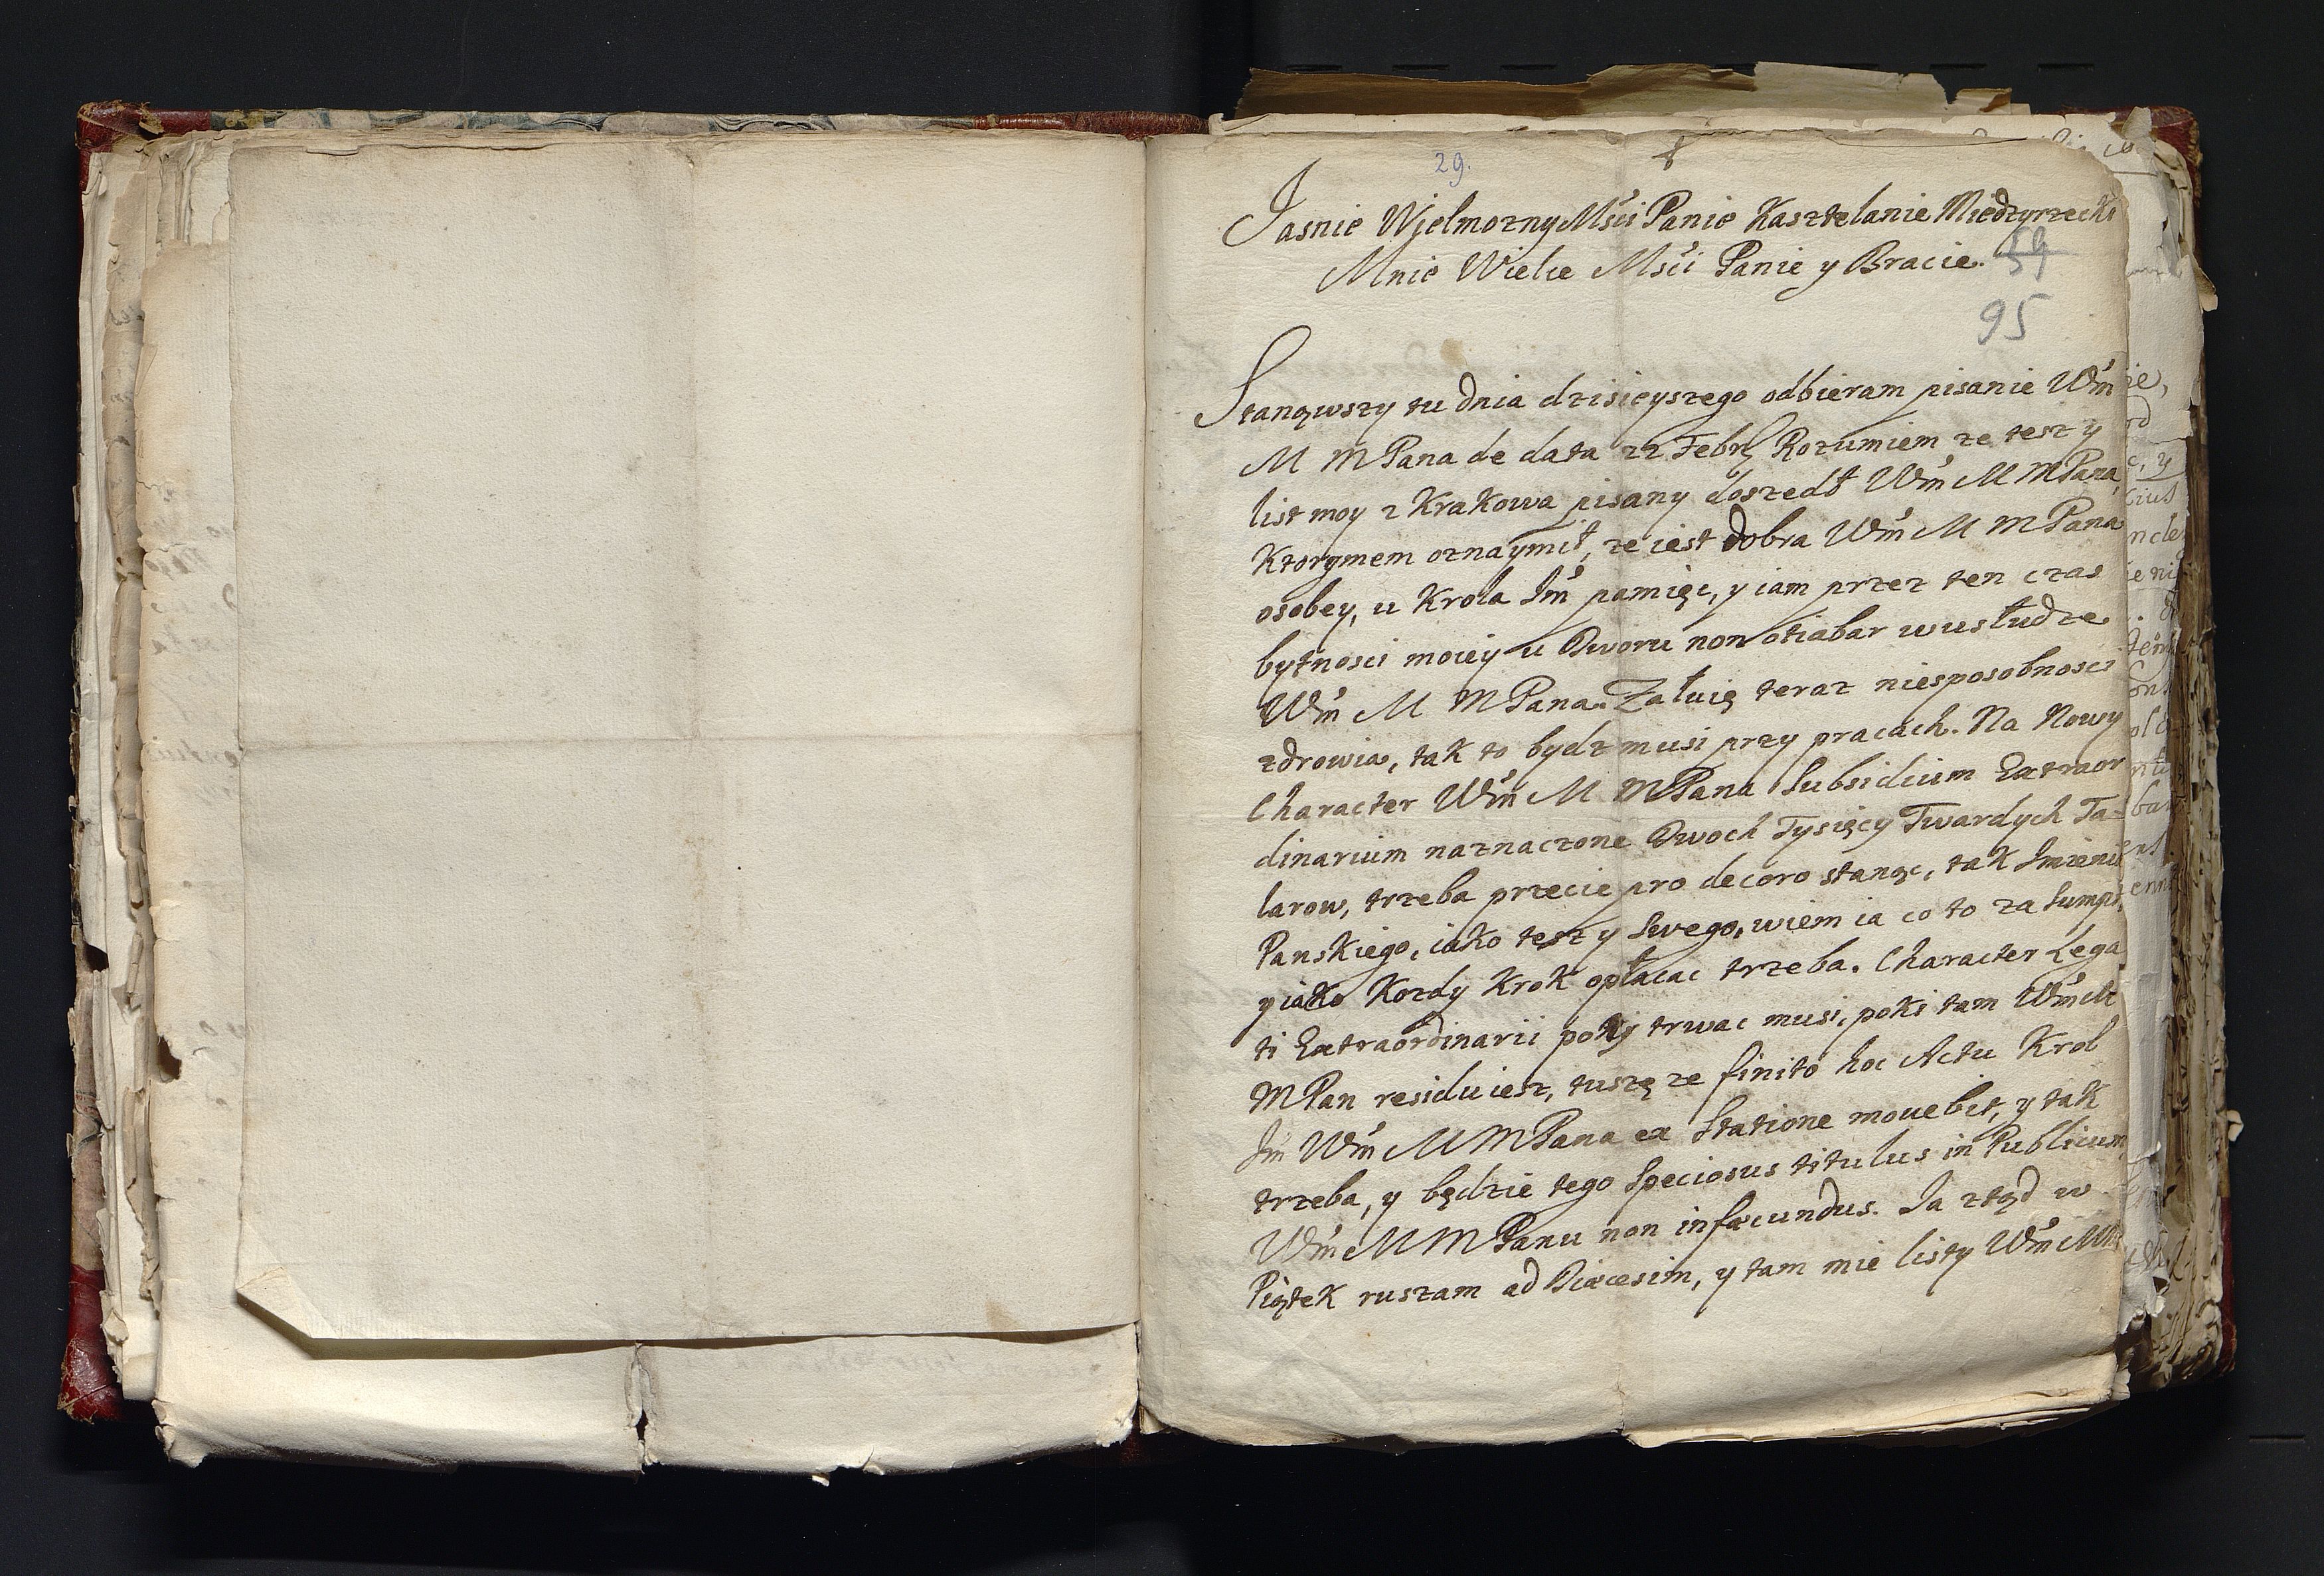 29.
Jasnie Wjelmozny Mści Panie Kasztelanie Miedzyrzecki
Mnie Wielce Mści Panie y Bracie.
59
95
Stanąwszy tu dnia dzisieyszego odbieram pisanie Wm̃
M M Pana de data 22 Febr Rozumiem ze tesz y
list moy z Krakowa pisany doszedł Wm̃ M M Pana,
Ktorymem oznaymił, ze iest dobra Wm̃ M M Pana
osobey, u Krola Jm̃ pamięc, y iam przez ten czas
bytnosci moiey u Dworu non otiabar w usłudze
Wm̃ M M Pana. Załuię teraz niesposobnosci
zdrowia, tak to bydz musi przy pracach. Na Nowy
Character Wm̃ M M Pana Subsidium Extraor
dinarium naznaczone Dwoch Tysięcy Twardych Ta-
larow, trzeba przecie pro decoro stanąc, tak Imieniu
Panskiego, iako tesz y Swego, wiem ia co to za sumpt,
y iako Kozdy Krok opłacac trzeba. Character Lega
ti Extraordinarii poki trwac musi, poki tam Wm̃ M
M Pan residuiesz, tuszę ze finito hoc Actu Krol
Jm̃ Wm̃ M M Pana ex Statione mouebit, y tak
trzeba, y będzie tego Speciosus titulus in Publicum,
Wm̃ M M Panu non infœcundus. Ja ztąd w
Piątek ruszam ad Diœcesim, y tam mie listy Wm̃ M M